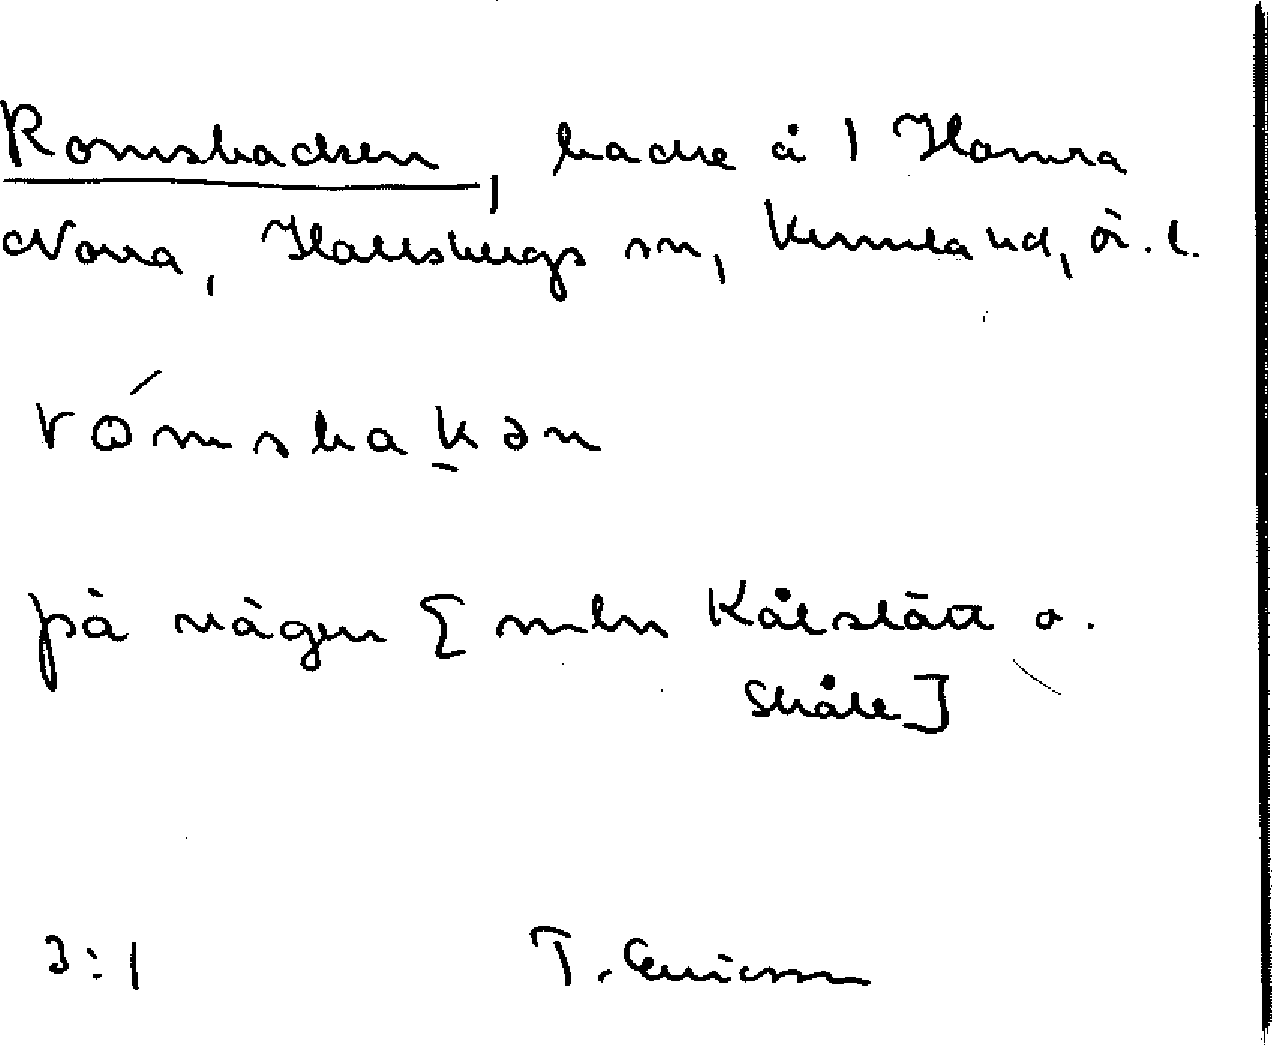 Romsbacken, backe å 1 Hamra
Norra, Hallsbergs sn, Kumla hd, ö.l.
rómsbakən
på vägen [mln Kålslätt o.
Skåle]
3:1
T. Ericsson